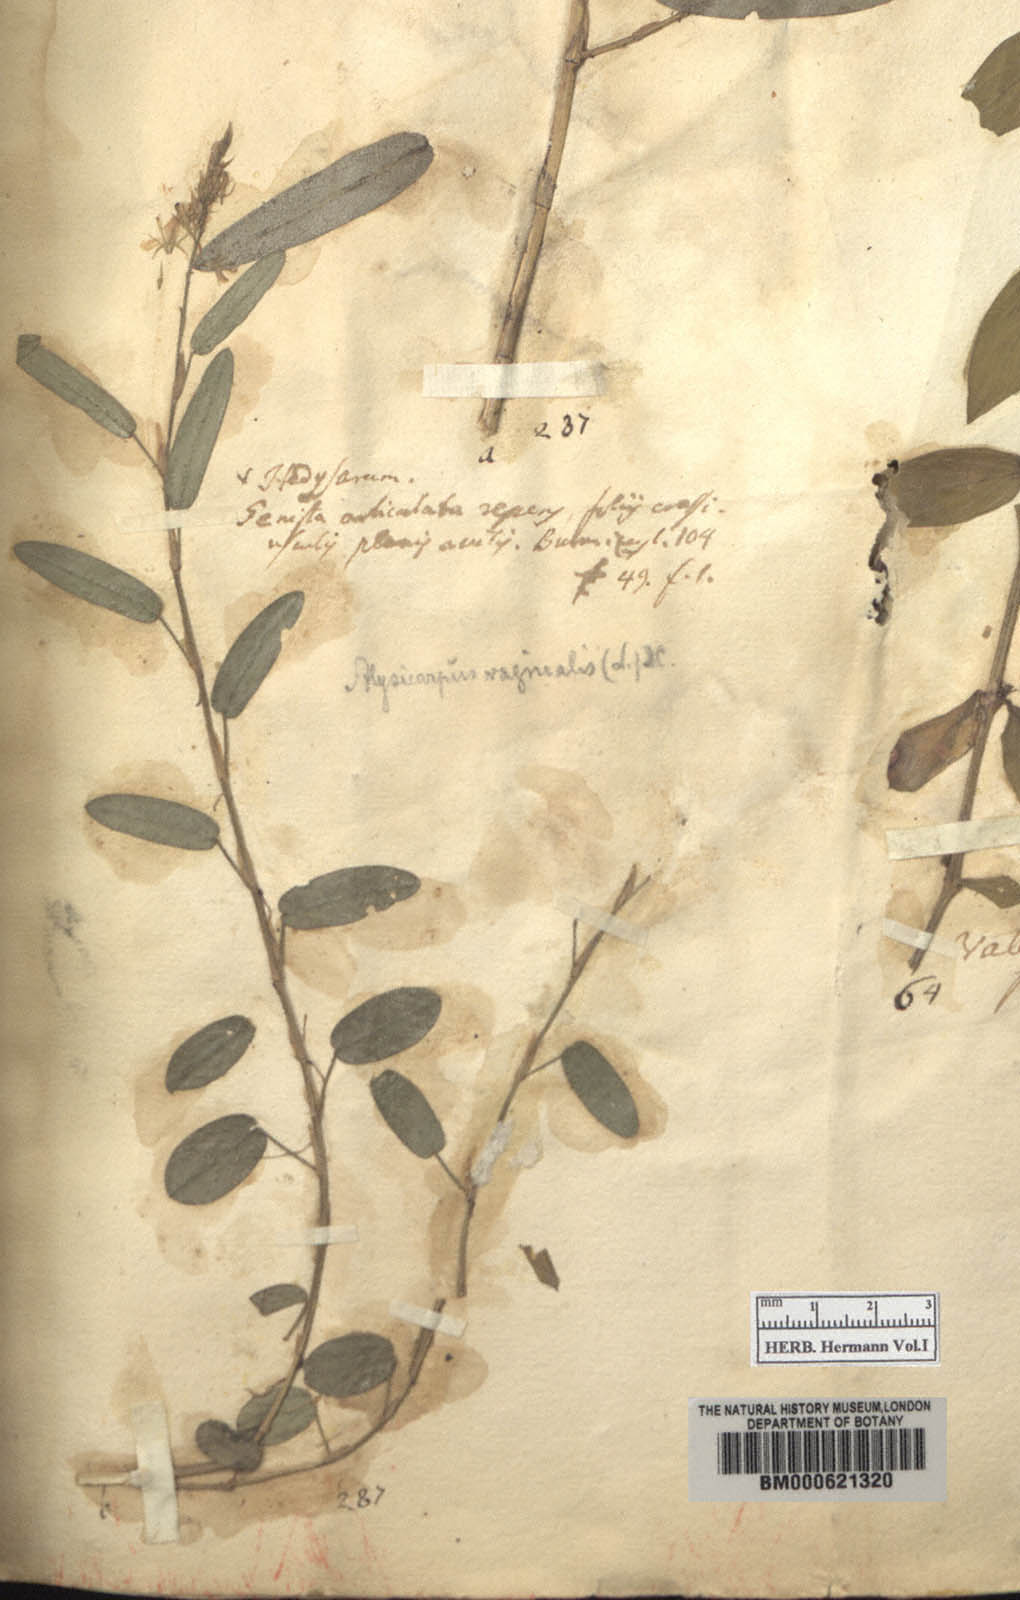 237
a
x Hedysarum.
Genista articulata repens, foliis crassi-
usculis planis acutis. Burm. zeyl. 104
t 49. f. 1.
Alysicarpus vaginalis (L.) DC.
Val
64
mm 1 2 3
HERB. Hermann Vol.I
THE NATURAL HISTORY MUSEUM,LONDON
DEPARTMENT OF BOTANY
BM000621320
287